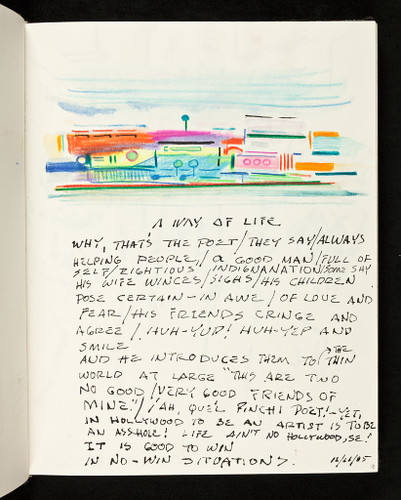 A WAY OF LIFE
WHY, THAT'S THE POET/THEY SAY/ALWAYS
HELPING PEOPLE,/A GOOD MAN/FULL OF
SELF/RIGHTIOUS INDIGNANATION/SOME SAY
HIS WIFE WINCES/SIGHS/HIS CHILDREN
POSE CERTAIN-IN AWE/OF LOVE AND
FEAR/HIS FRIENDS CRINGE AND
AGREE/HUH-YUP! HUH-YEP AND
SMILE
AND HE INTRODUCES THEM TO/THE THIN
WORLD AT LARGE "THIS ARE TWO
NO GOOD/VERY GOOD FRIENDS OF
MINE"/¡AH, QUE'L PINCHI POET!-YET,
IN HOLLYWOOD TO BE AN ARTIST IS TO BE
AN ASSHOLE! LIFE AIN'T NO HOLLYWOOD, SE!
IT IS GOOD TO WIN
IN NO-WIN SITUATIONS
12/26/05